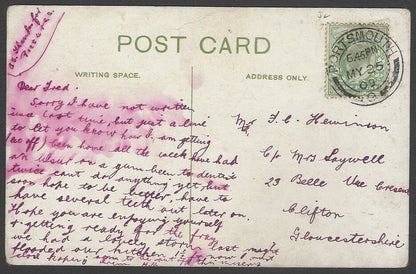 POST CARD
WRITING SPACE.
ADDRESS ONLY.
PORTSMOUTH
6.45PM
MY 25
09
Dear Fred.
Sorry I have not written
since last time but just a line
to let you know how I am getting
on off) been home all the week have had
an ulser on a gum been to dentist
twice cant do anything yet but
soon hope to be better, have to
have several teeth out later on.
Hope you are enjoying yourself
& getting ready for the
we had a lovely storm last night
flooded our kitchen it
Mr F. C. Hewinson
C/o Mrs Saywell
23 Belle Vue Crescent
Clifton
Gloucestershire